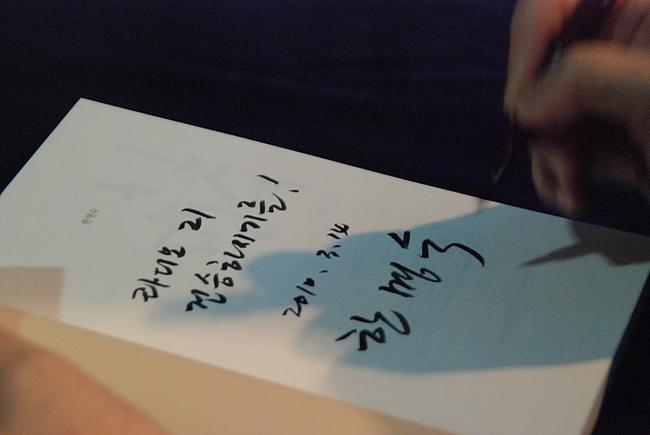 라디오 리
건승하시기를!
2010. 3. 14
한명숙